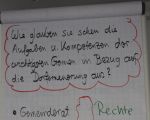 Wie glauben Sie sehen die
Aufgaben u. Kompetenzen der
wichtigsten Gremien in Bezug auf
die Inventarisierung aus?
• Gemeinderat
Rechte